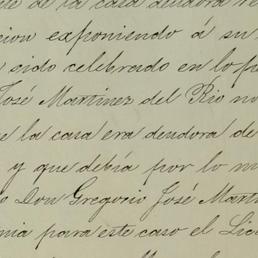 de la casa deudora
cion exponiendo á su
sido celebrado en lo p
José Martinez del Rio no
e la casa era deudora de
y que debia por lo m
o Don Gregorio José Marti
nia para este caso el Lice